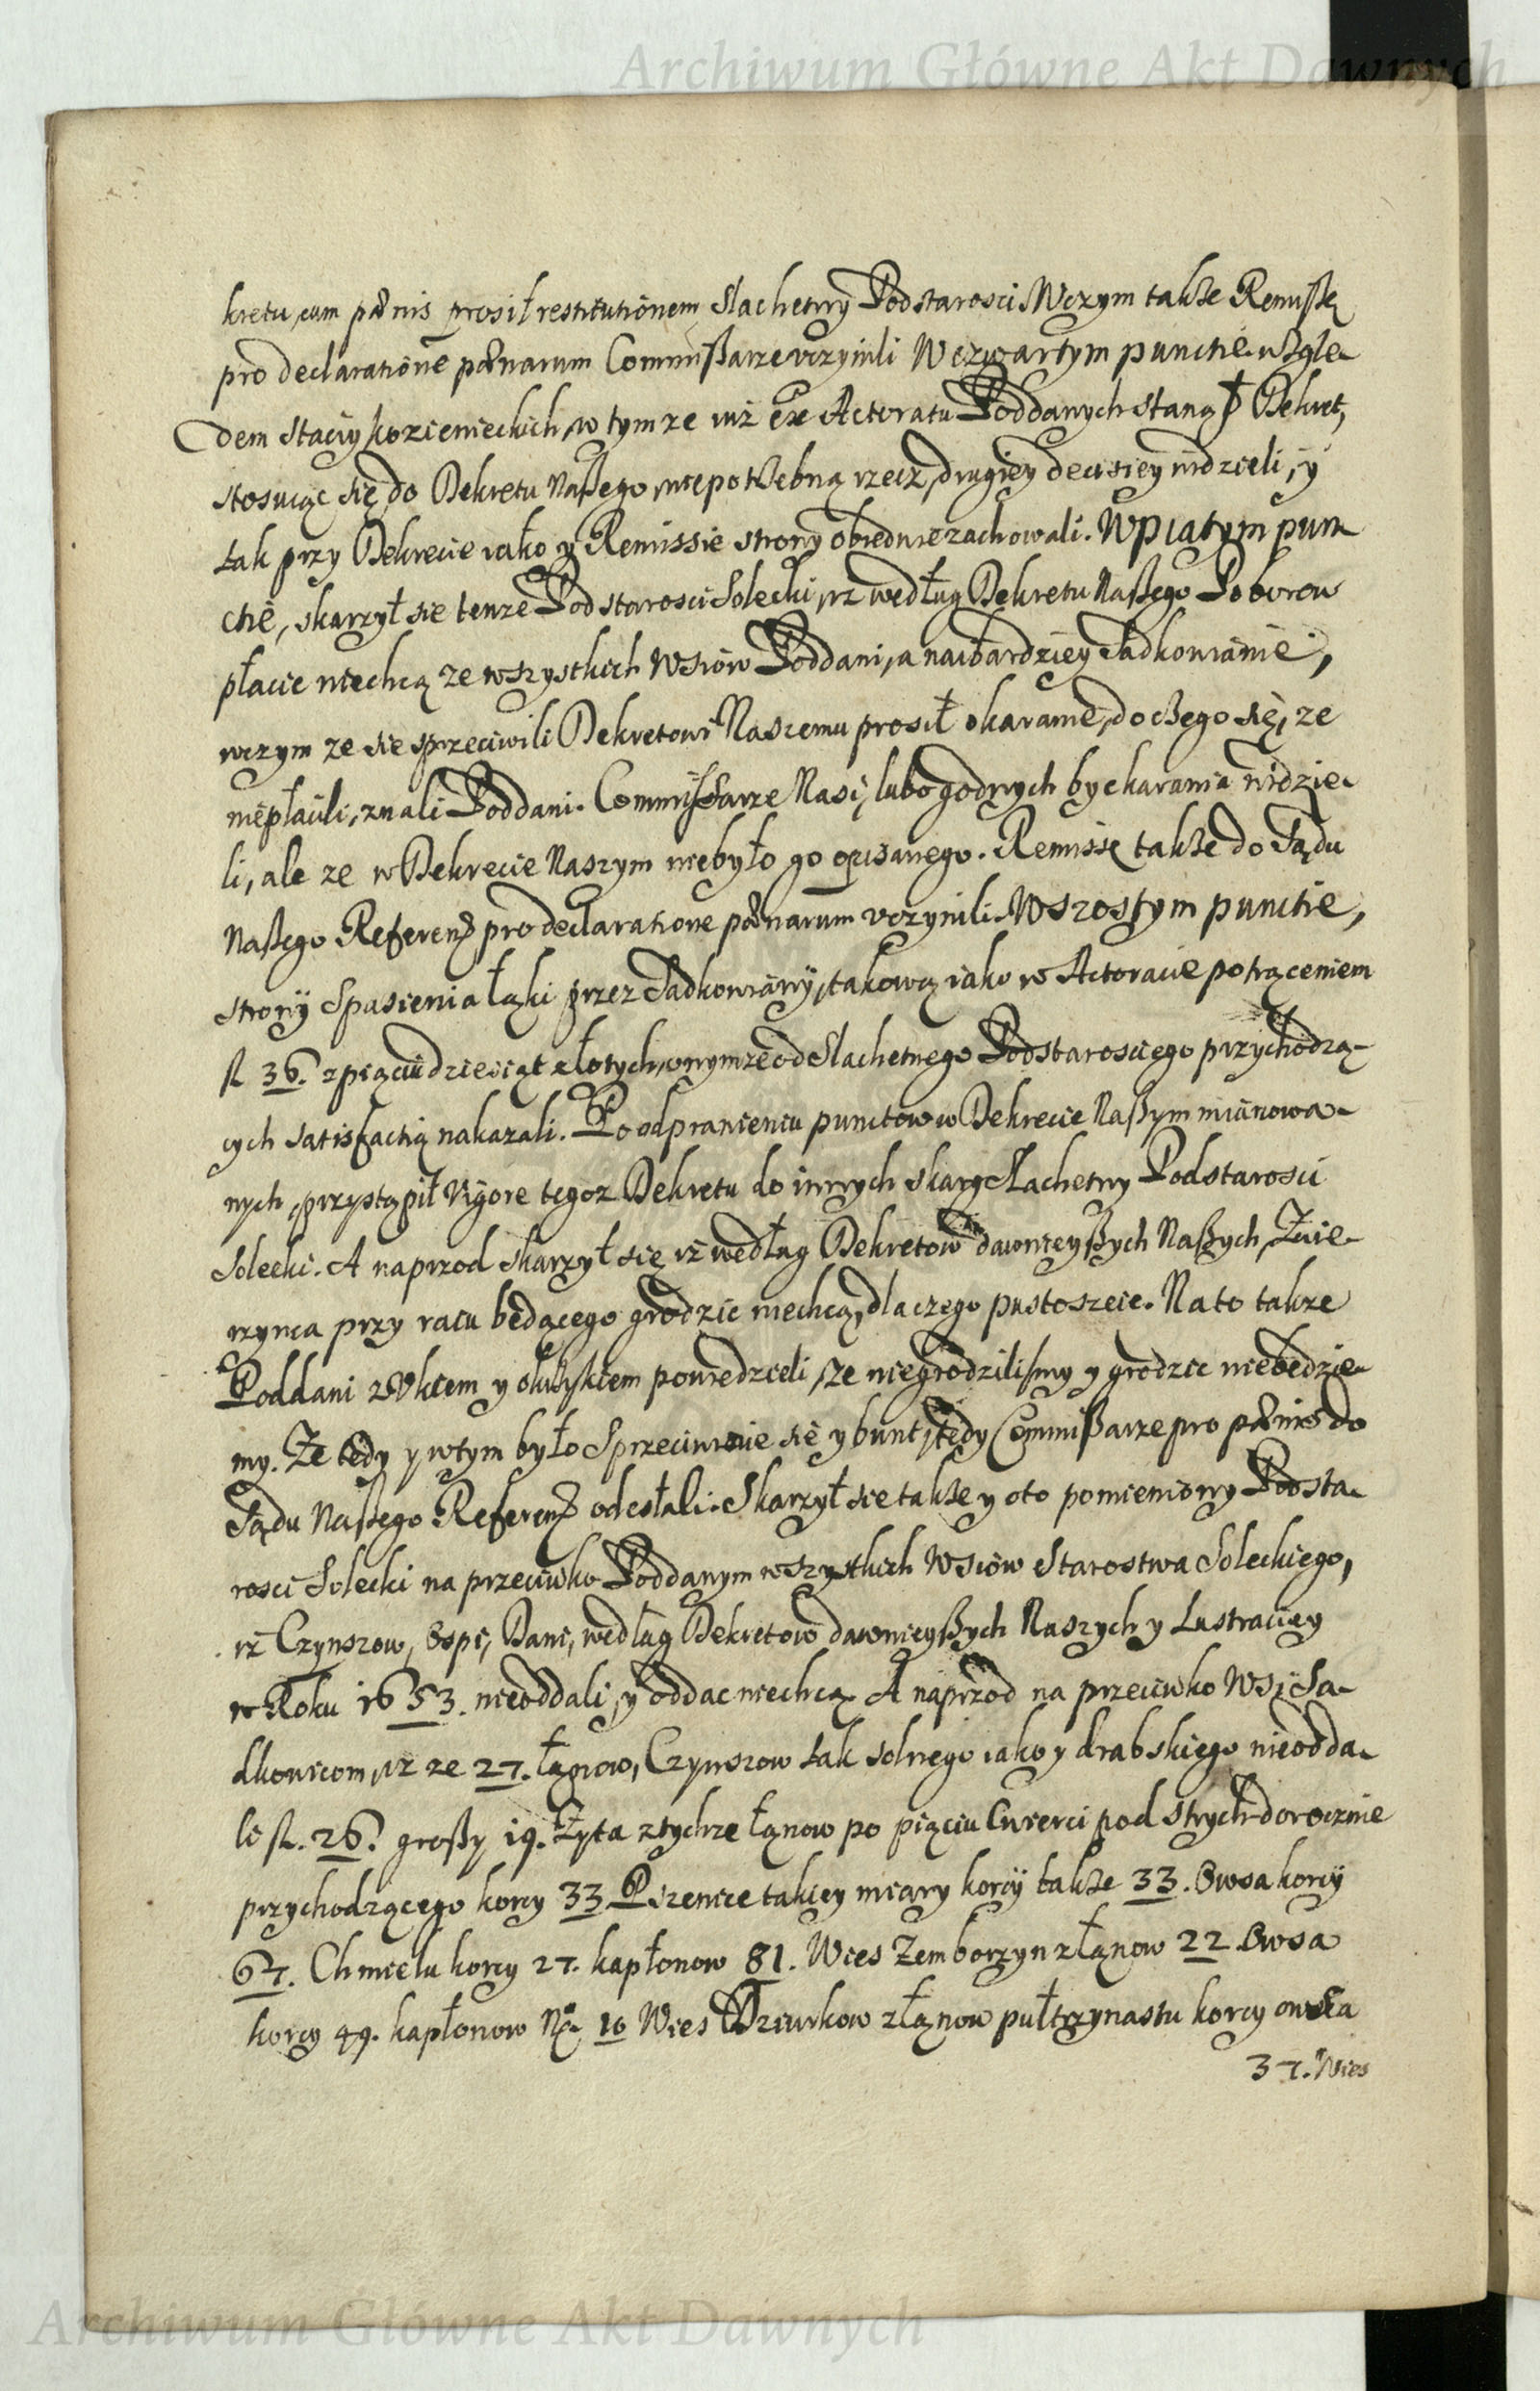 Archiwum Główne Akt Dawnych
kretu, cum pœnis prosił restitutionem Slachetny Podstarosci. Wczym także Remissę
pro declaratione pœnarum Commissarze vczynili. W czwartym punctie wzglę-
dem Staciy kozienieckich, w tym ze iuż ex Actoratu Poddanych stanął Dekret,
stosuiąc się do Dekretu Naßego, niepotrzebną rzecz drugiey decisiey widzieli, y
tak przy Dekrecie iako y Remissie strony obiedwie zachowali. W piątym pun-
ctie, skarzył sie tenze Podstarosci Solecki, iz według Dekretu Naßego Poborow
płacic niechcą ze wszystkich Wsiow Poddani, a naibardziey Sadkowianie,
wczym ze sie sprzeciwili Dekretowi Naszemu prosił o karanie, do czego się, ze
niepłacili, znali Poddani. Commissarze Nasi, lubo godnych bydz karania widzie-
li, ale ze w Dekrecie Naszym niebyło go opisanego. Remissę także do Sądu
Naßego Referend pro declaratione pœnarum vczynili. W szostym punctie,
strony Spasienia łąki przez Sadkowiany, takową iako w Actoracie potrąceniem
fl 36. z pięciudziesiąt złotych, onymze od Slachetnego Podstarosciego przychodzą-
cych satisfactią nakazali. Po odprawieniu punctow w Dekrecie Naßym mianowa-
nych, przystąpił Vigore tegoz Dekretu do innych skarg Slachetny Podstarosci
Solecki. A naprzod skarzył się iż według Dekretow dawnieyßych Naßych, Zwie-
rzynca przy raiu będącego grodzic niechcą, dla czego pustoszeie. Na to takze
Poddani z Wkiem y okrzykiem powiedzieli, ze niegrodzilismy y grodzic niebędzie-
my. Ze tedy y wtym było Sprzeciwienie się y bunt, tedy Commißarze pro pœnis do
Sądu Naßego Referend odesłali. Skarzył sie także y oto pomieniony Podsta-
rosci Solecki na przeciwko Poddanym wszystkich Wsiow Starostwa Soleckiego,
iż Czynszow, Ospi, Dani, według Dekretow dawnieyßych Naszych y Lustraciey
w Roku 1653. nieoddali, y oddac niechcą. A naprzod na przeciwko Wsi Sa-
dkowicom, iz ze 27. łąnow, Czynszow tak solnego iako y drabskiego nieodda-
li fl. 26. großy 19. Zyta ztychze łąnow po pięciu Cwierci pod strych dorocznie
przychodzącego korcy 33. Pszenice takiey miary korcy także 33. Owsa korcy
67. Chmielu korcy 27. kapłonow 81. Wies Zemborzyn z łąnow 22. Owsa
korcy 49. kapłonow No. 10 Wies Dziurkow z łąnow pułtrzynastu korcy owsa
37. Wies
Archiwum Główne Akt Dawnych